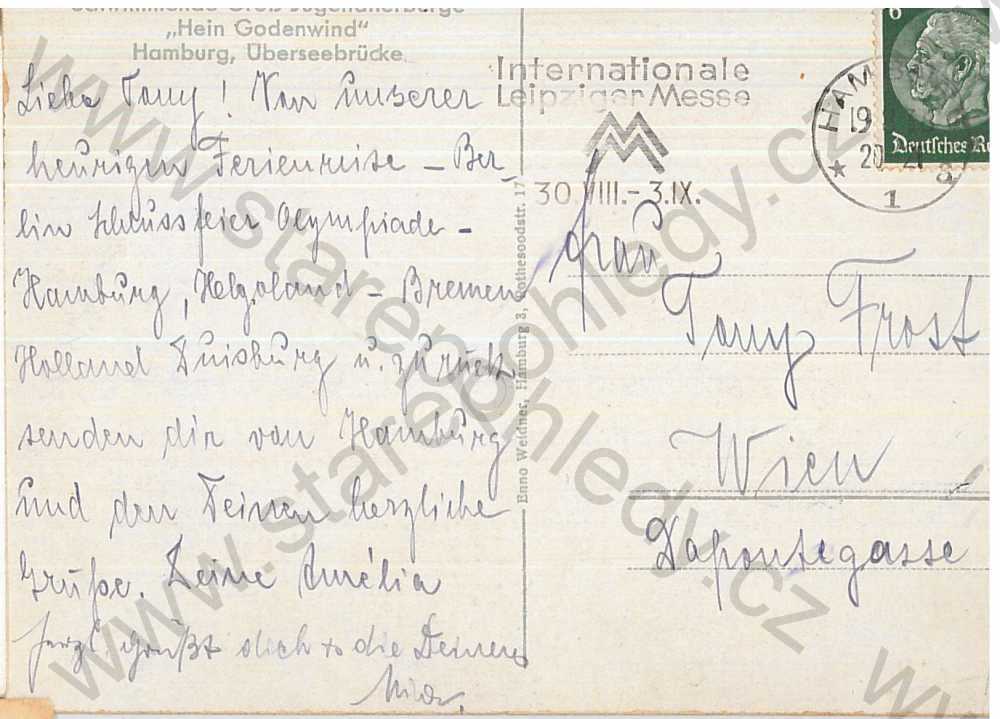 Schwimmende Groß-Jugendherberge
„Hein Godenwind"
Hamburg, Überseebrücke
Liebe Tony! Von unserer
heurigen Ferienreise – Ber-
lin Schlussfeier Olympiade –
Hamburg, Helgoland – Bremen
Holland Duisburg u. zurück
senden dir von Hamburg
und den Deinen herzliche
Grüße. Deine Amélia
grüßt dich + die Deinen
Enno Weidner, Hamburg 3, Rothesoodstr. 17
Internationale
Leipziger Messe
30.VIII.–3.IX.
6
Deutsches Re
HAM
19
20 21
1
Frau
Tony Frost
Wien
Dapontegasse
www.starepohledy.cz
www.starepohledy.cz